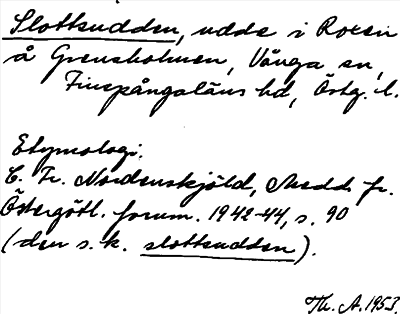 Slottsudden, udde i Roxen
å Grensholmen, Vånga sn,
Finspångaläns hd, Östg. l.
Etymologi.
C. Fr. Nordenskjöld, Medd. fr.
Östergötl. fornm. 1942-44, s. 90
(den s.k. slottsudden).
Th. A. 1953.